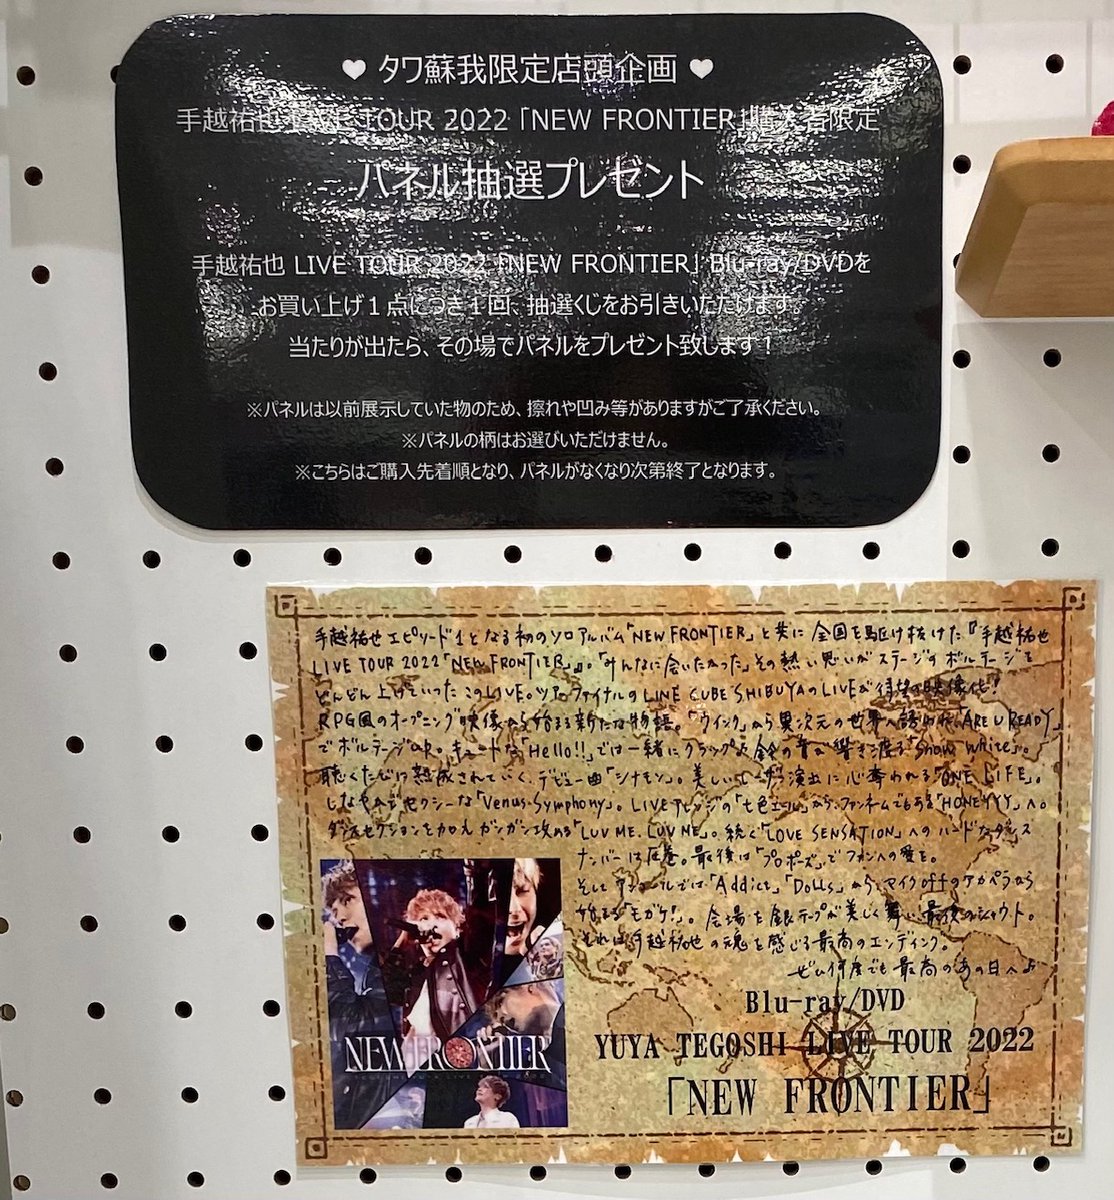 ♥ タワ蘇我限定店頭企画 ♥
手越祐也 LIVE TOUR 2022「NEW FRONTIER」購入者限定
パネル抽選プレゼント
手越祐也 LIVE TOUR 2022「NEW FRONTIER」Blu-ray/DVDを
お買い上げ1点につき1回、抽選くじをお引きいただけます。
当たりが出たら、その場でパネルをプレゼント致します!
※パネルは以前展示していた物のため、擦れや凹み等がありますがご了承ください。
※パネルの柄はお選びいただけません。
※こちらはご購入先着順となり、パネルがなくなり次第終了となります。
手越祐也エピソード1となる初のソロアルバム「NEW FRONTIER」と共に全国を駆け抜けた『手越祐也
LIVE TOUR 2022「NEW FRONTIER」』。「みんなに会いたかった」その熱い思いがステージのボルテージを
どんどん上げていったこのLIVE。ツアーファイナルのLINE CUBE SHIBUYAのLIVEが待望の映像化!
RPG風のオープニング映像から始まる新たな物語。「ウインク」から異次元の世界へ誘われ「ARE U READY」
でボルテージUP。キュートな「Hello!!」では一緒にクラップ♪鈴の音が響き渡る「Snow White」。
聴くたびに熟成されていく、デビュー曲「シナモン」。美しいレーザー演出に心奪われる「ONE LIFE」。
しなやかでセクシーな「Venus Symphony」。LIVEアレンジの「七色エール」から、ファンネームでもある「HONEYYY」へ。
ダンスセクションを加え ガンガン攻める「LUV ME, LUV ME」。続く「LOVE SENSATION」へのハードなダンス
ナンバーは圧巻。最後は「プロポーズ」でファンへの愛を。
そしてアンコールでは「Addict」「DOLLs」から、マイクoffのアカペラから
始まる「モガケ!」。会場を銀テープが美しく舞い最後のシャウト。
それは手越祐也の魂を感じる最高のエンディング。
ぜひ何度でも最高のあの日へ♪
NEW FRONTIER
Blu-ray/DVD
YUYA TEGOSHI LIVE TOUR 2022
「NEW FRONTIER」